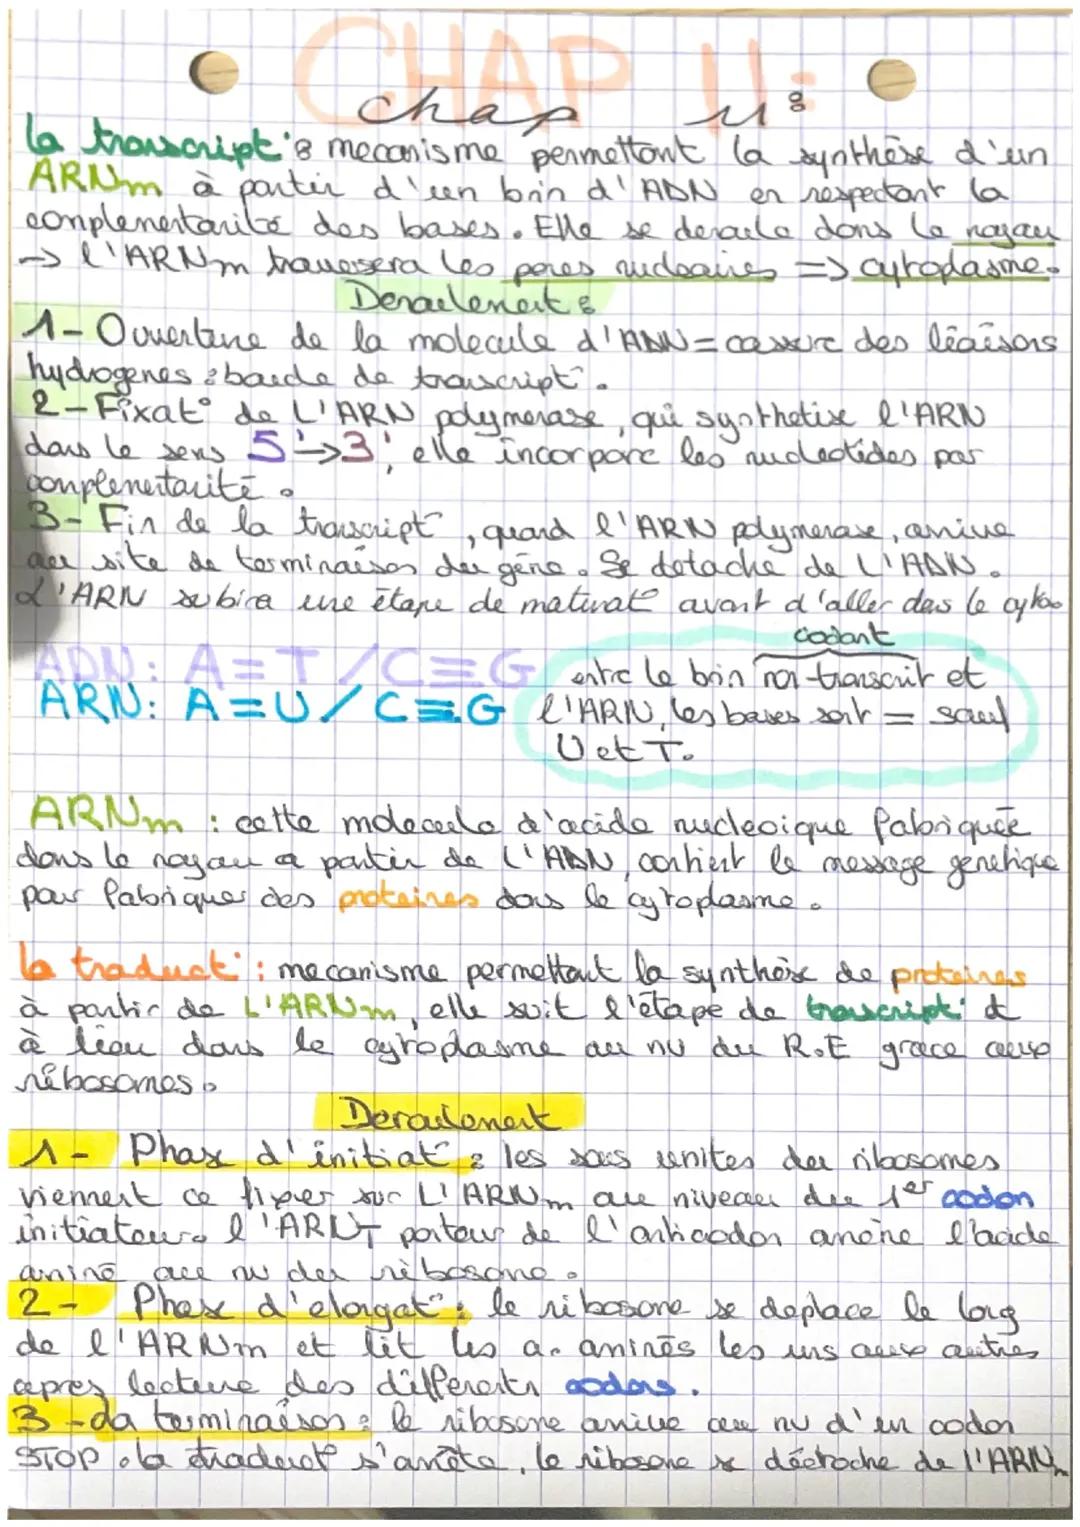 CHAP 4:
chap 4:
la transcript°: mecanisme permettant la synthèse d'un
ARNm à partir d'un brin d'ADN en respectant la
complementarité des bases. Elle se deroule dans le noyau
-> l'ARNm traversera les pores nucleaires => cytoplasme.
Deroulement:
1- Ouverture de la molecule d'ADN = cassure des liaisons
hydrogenes : boucle de transcript°.
2- Fixat° de L'ARN polymerase, qui synthetise l'ARN
dans le sens 5'->3', elle incorpore les nucleotides par
complementarité.
3- Fin de la transcript°, quand l'ARN polymerase, arrive
au site de terminaison du gène. Se detache de L'ADN.
L'ARN subira une étape de maturat° avant d'aller dans le cyto
ADN: A=T / C≡G
ARN: A=U / C≡G
codant
entre le brin non-transcrit et
l'ARN, les bases sont = sauf
U et T.
ARNm : cette molecule d'acide nucleoique fabriquée
dans le noyau a partir de l'ADN, contient le message genetique
pour fabriquer des proteines dans le cytoplasme.
la traduct° : mecanisme permettant la synthèse de proteines
à partir de L'ARNm, elle suit l'étape de transcript° et
à lieu dans le cytoplasme au nv du R.E grace aux
ribosomes.
Deroulement
1- Phase d'initiat° : les sous unites du ribosomes
viennent ce fixer sur L'ARNm au niveau du 1er codon
initiateur. l'ARNT porteur de l'anticodon amène l'acide
aminé au nv du ribosome.
2- Phase d'elongat° : le ribosome se deplace le long
de l'ARNm et lit les a. aminés les uns aux autres
apres lecture des differents codons.
3- La terminaison : le ribosome arrive au nv d'un codon
STOP. la traduct° s'arrête, le ribosome se décroche de l'ARNm